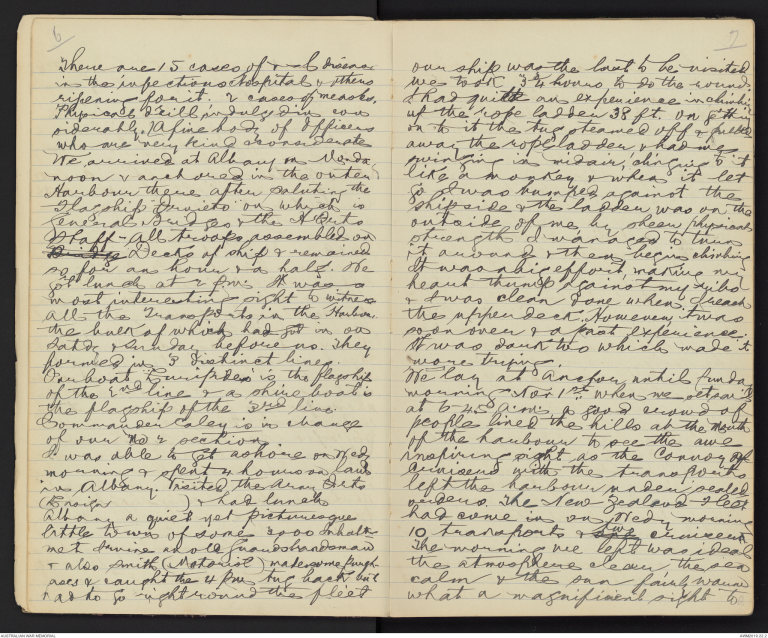 6
There are 15 cases of disease
in the infectious hospital & others
ripening for it. 2 cases of measles.
Physical drill indulged in con
siderably. A fine body of officers
who are very kind & considerate
We arrived at Albany on Monday
noon & anchored in the outer
Harbour there after saluting the
Flagship Orvieto on which is
General Bridges & the H Qrts
Staff - All troops assembled on
Decks of ship & remained
so for an hour & a half. We
got lunch at 2 p.m. It was a
most interesting sight to witness
all the Transports in the Harbour
the bulk of which had got in on
Satdy & Sunday before us. They
formed in 3 distinct lines.
Our boat Euripides is the flagship
of the 2nd line & a shire boat is
the flagship of the 3rd line.
Commander Caley is in charge
of our No 2 section.
I was able to get ashore on Wedy
morning & spent 4 hours on land
in Albany. Visited the Army Qrts
(Ensign ) & had lunch
Albany a quiet yet picturesque
little town of some 3000 inhabt-
met Irvine an old Grandsbandsman
& also Smith (Motorist) made some purch-
ases & caught the 4 pm tug back but
had to go right round the fleet
7
our ship was the last to be visited
we took 3 3/4 hours to do the round.
I had quite an experience in climbing
up the rope ladder 38 ft. on getting
on to it the tug steamed off & pulled
away the rope ladder & had me
swinging in midair, clinging to it
like a monkey & when it let
go I was bumped against the
shipside & the ladder was on the
outside of me by sheer physical
strength I managed to turn
it around & then began climbing
It was a big effort, making my
heart thump against my ribs
& I was clean done when I reach
the upper deck. However twas
soon over & a past experience.
It was dark too which made it
more trying.
We lay at Anchor until Sunday
morning Nov 1st when we set sail
at 6-45 a.m. A good crowd of
people lined the hills at the mouth
of the harbour to see the awe
inspiring sight as the Convoy of
Cruisers with the transports
left the harbour under sealed
orders. The New Zealand Fleet
had come in on Wedy morning
10 transports & two cruisers
The morning we left was ideal
the atmosphere clear, the sea
calm & the sun fairly warm
what a magnificent sight to
AUSTRALIAN WAR MEMORIAL
AWM2019.22.2